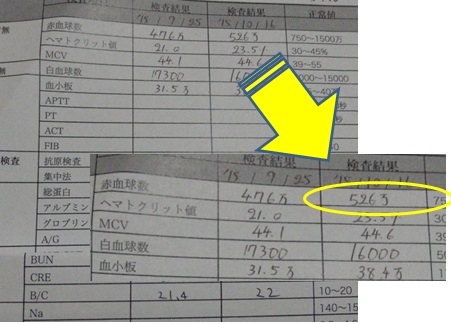 検査結果 検査結果 正常値
'15 / 9 / 25 '15 / 10 / 16
赤血球数 476万 526万 750〜1500万
ヘマトクリット値 21.0 23.51 30〜45%
MCV 44.1 44.6 39〜55
白血球数 17300 000〜15000
血小板 31.5万
APTT
PT
ACT
FIB
検査 抗原検査
集中法
総蛋白
アルブミン
グロブリン
A/G
BUN
CRE
B/C 21.4 22 10〜20
Na
検査結果 検査結果
'15 / 9 / 25
赤血球数 476万 526万
ヘマトクリット値 21.0 23.51
MCV 44.1 44.6
白血球数 17300 16000
血小板 31.5万 38.4万